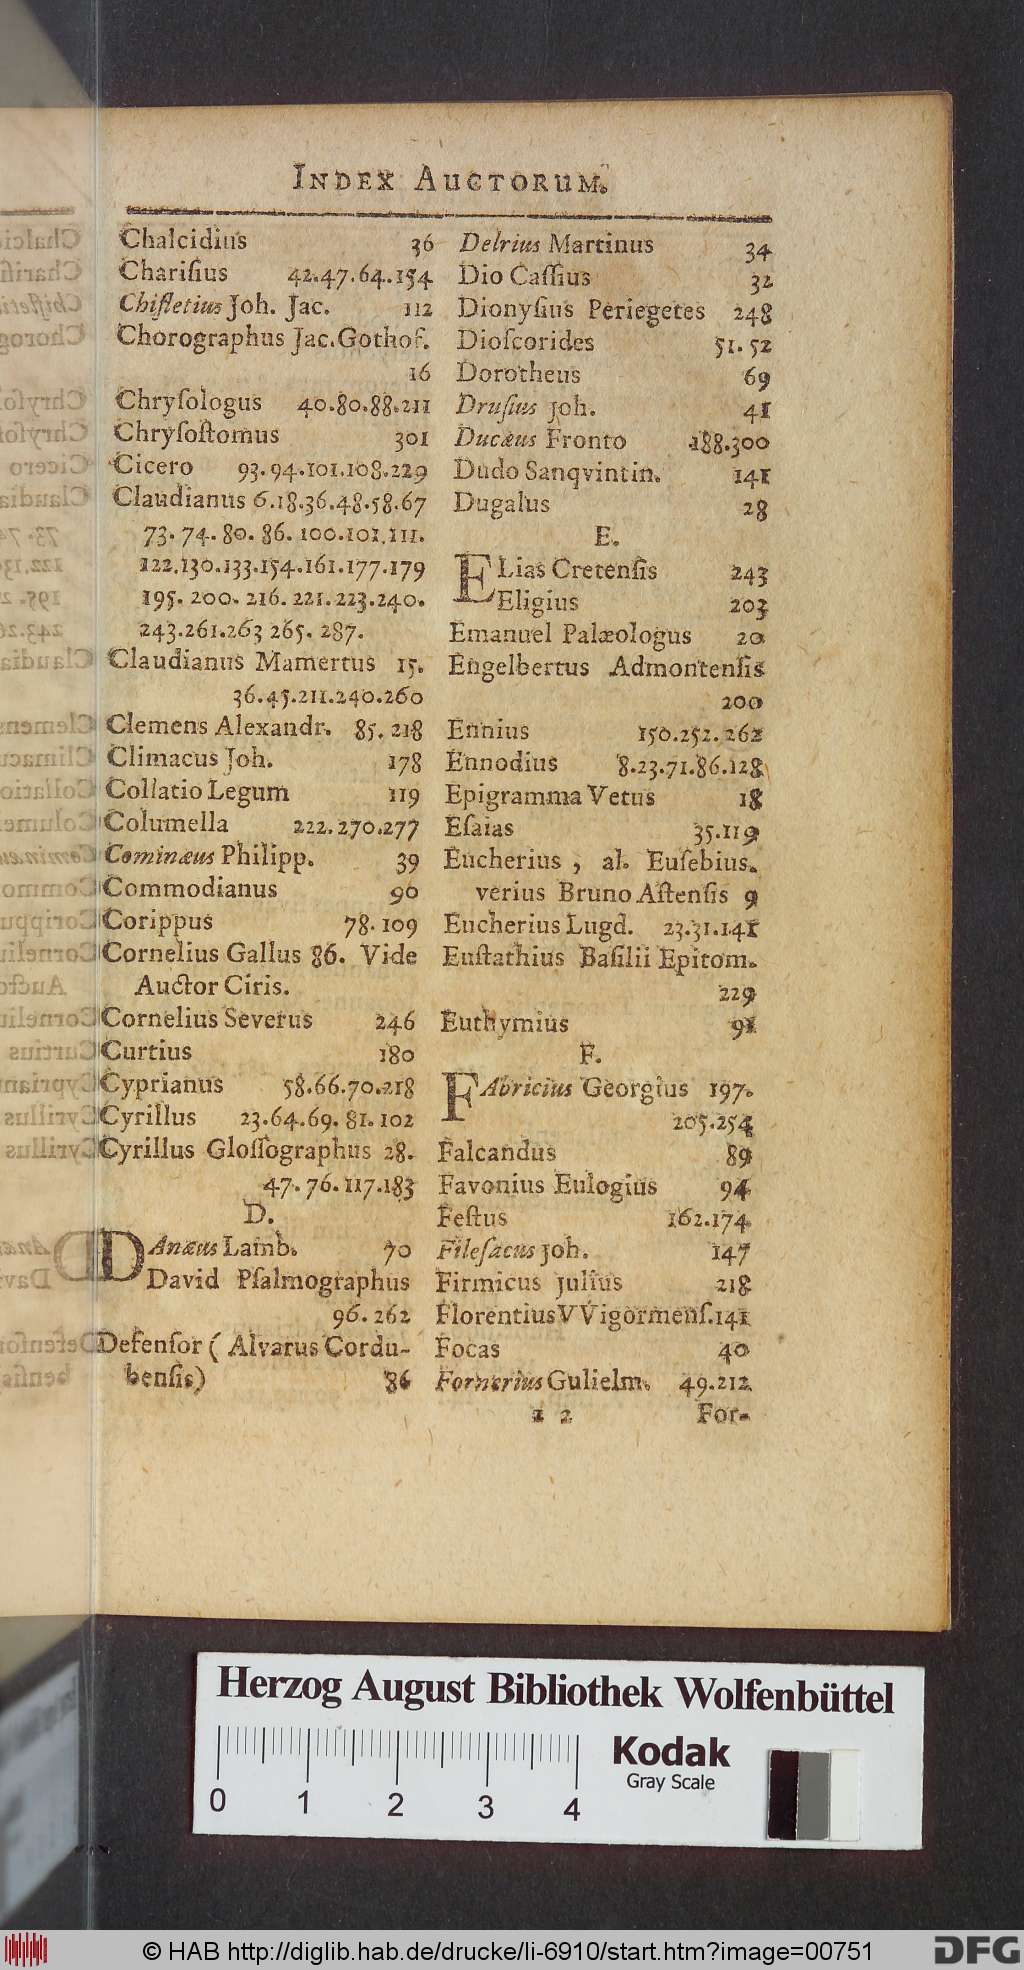 INDEX AUCTORUM.
Chalcidius 36
Chariſius 42.47.64.154
Chifletius Joh. Jac. 112
Chorographus Jac. Gothof.
16
Chryſologus 40.80.88.211
Chryſoſtomus 301
Cicero 93.94.101.108.229
Claudianus 6.18.36.48.58.67
73.74.80.86.100.101.111.
122.130.133.154.161.177.179
195.200.216.221.223.240.
243.261.263 265.287.
Claudianus Mamertus 15.
36.45.211.240.260
Clemens Alexandr. 85.218
Climacus Joh. 178
Collatio Legum 119
Columella 222.270.277
Cominæus Philipp. 39
Commodianus 90
Corippus 78.109
Cornelius Gallus 86. Vide
Auctor Ciris.
Cornelius Severus 246
Curtius 180
Cyprianus 58.66.70.218
Cyrillus 23.64.69.81.102
Cyrillus Gloſſographus 28.
47.76.117.183
D.
DAnæus Lamb. 70
David Pſalmographus
96.262
Defenſor (Alvarus Cordu-
benſis) 86
Delrius Martinus 34
Dio Caſſius 32
Dionyſius Periegetes 248
Dioſcorides 51.52
Dorotheus 69
Druſius Joh. 41
Ducæus Fronto 188.300
Dudo Sanqvintin. 141
Dugalus 28
E.
ELias Cretenſis 243
Eligius 203
Emanuel Palæologus 20
Engelbertus Admontenſis
200
Ennius 150.252.262
Ennodius 8.23.71.86.128
Epigramma Vetus 18
Eſaias 35.119
Eucherius, al. Euſebius.
verius Bruno Aſtenſis 9
Eucherius Lugd. 23.31.141
Euſtathius Baſilii Epitom.
229
Euthymius 91
F.
FAbricius Georgius 197.
205.254
Falcandus 89
Favonius Eulogius 94
Feſtus 162.174
Fileſacus Joh. 147
Firmicus Julius 218
Florentius VVigormenſ. 141
Focas 40
Fornerius Gulielm. 49.212
1 2 For-
Herzog August Bibliothek Wolfenbüttel
0 1 2 3 4
Kodak
Gray Scale
© HAB http://diglib.hab.de/drucke/li-6910/start.htm?image=00751
DFG